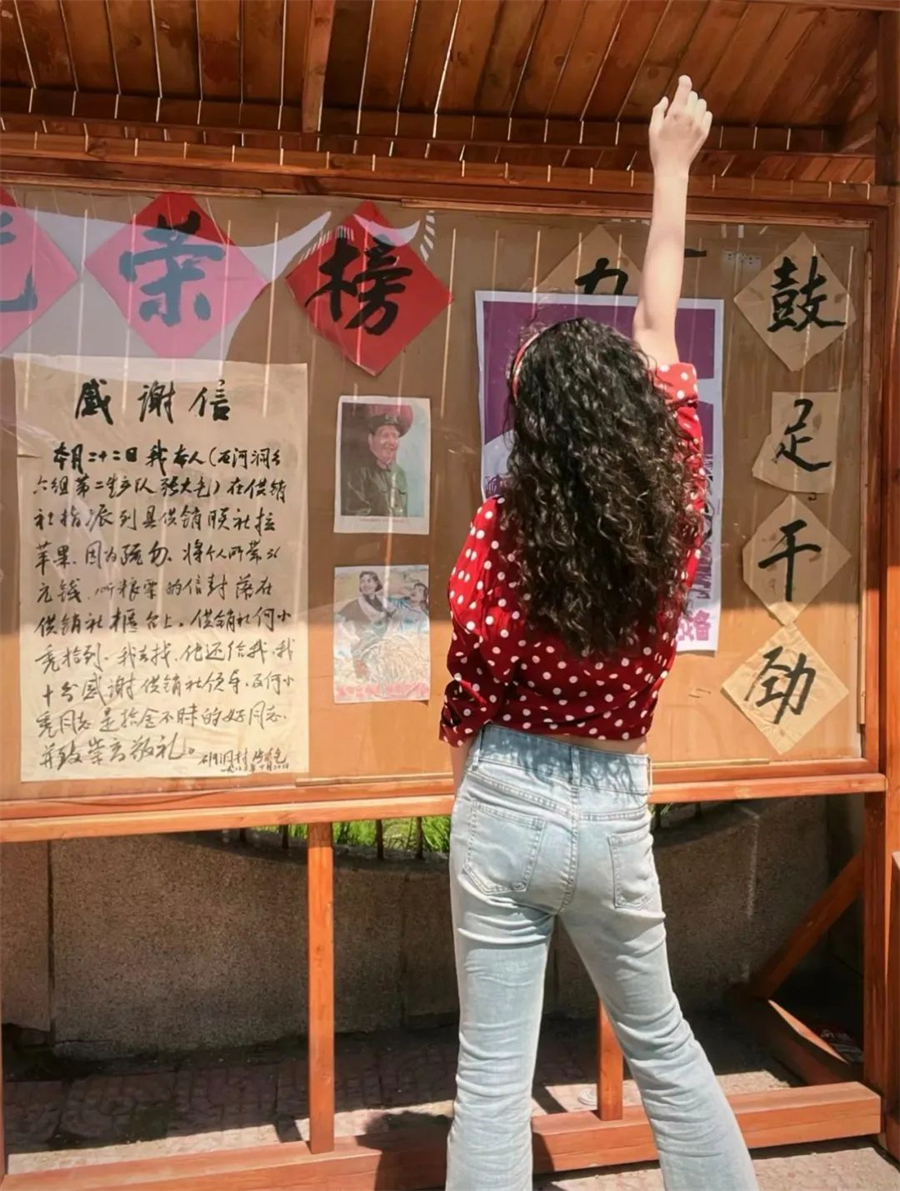 光荣榜
感谢信
本月二十二日我本人(石河洞乡
六组第二生产队张大毛)在供销
社指派到县供销联社拉
苹果,因为疏忽,将个人所带
元钱、所粮票的信封落在
供销社柜台上,供销社何小
亮拾到,我去找,他还给我,我
十分感谢供销社领导,及何小
亮同志是拾金不昧的好同志,
并致崇高敬礼。
力
鼓
足
干
劲
备